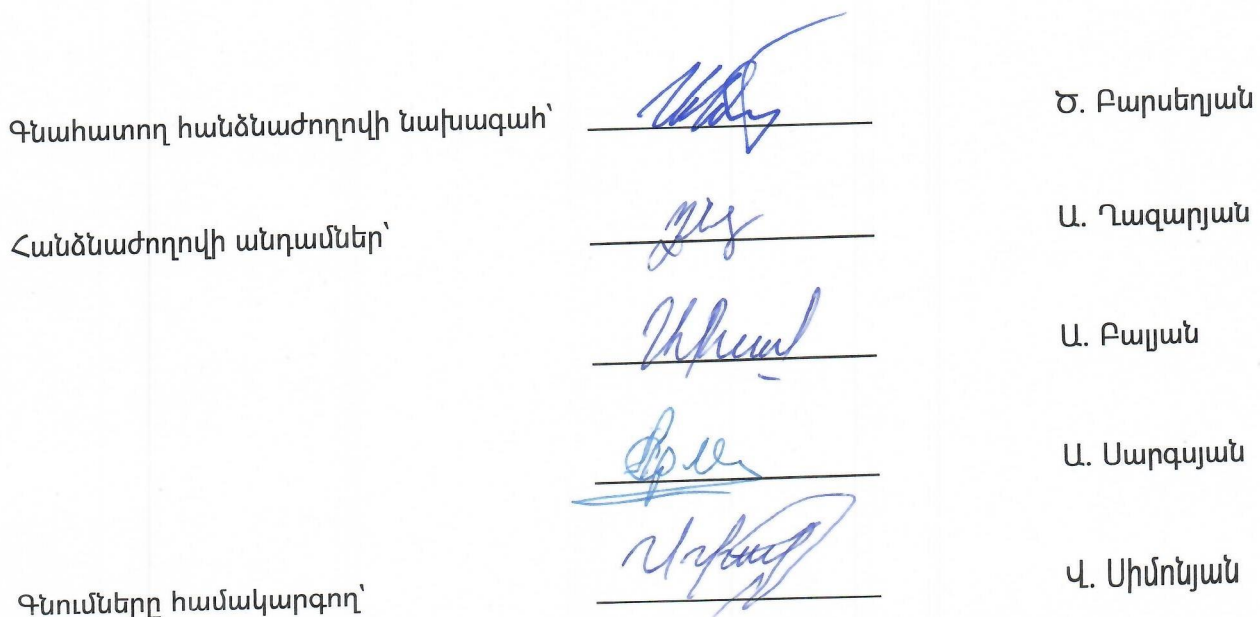 Գնահատող հանձնաժողովի նախագահ՝ Ծ. Բարսեղյան
Հանձնաժողովի անդամներ՝ Ա. Ղազարյան
Ա. Բալյան
Ա. Սարգսյան
Գնումները համակարգող՝ Վ. Սիմոնյան